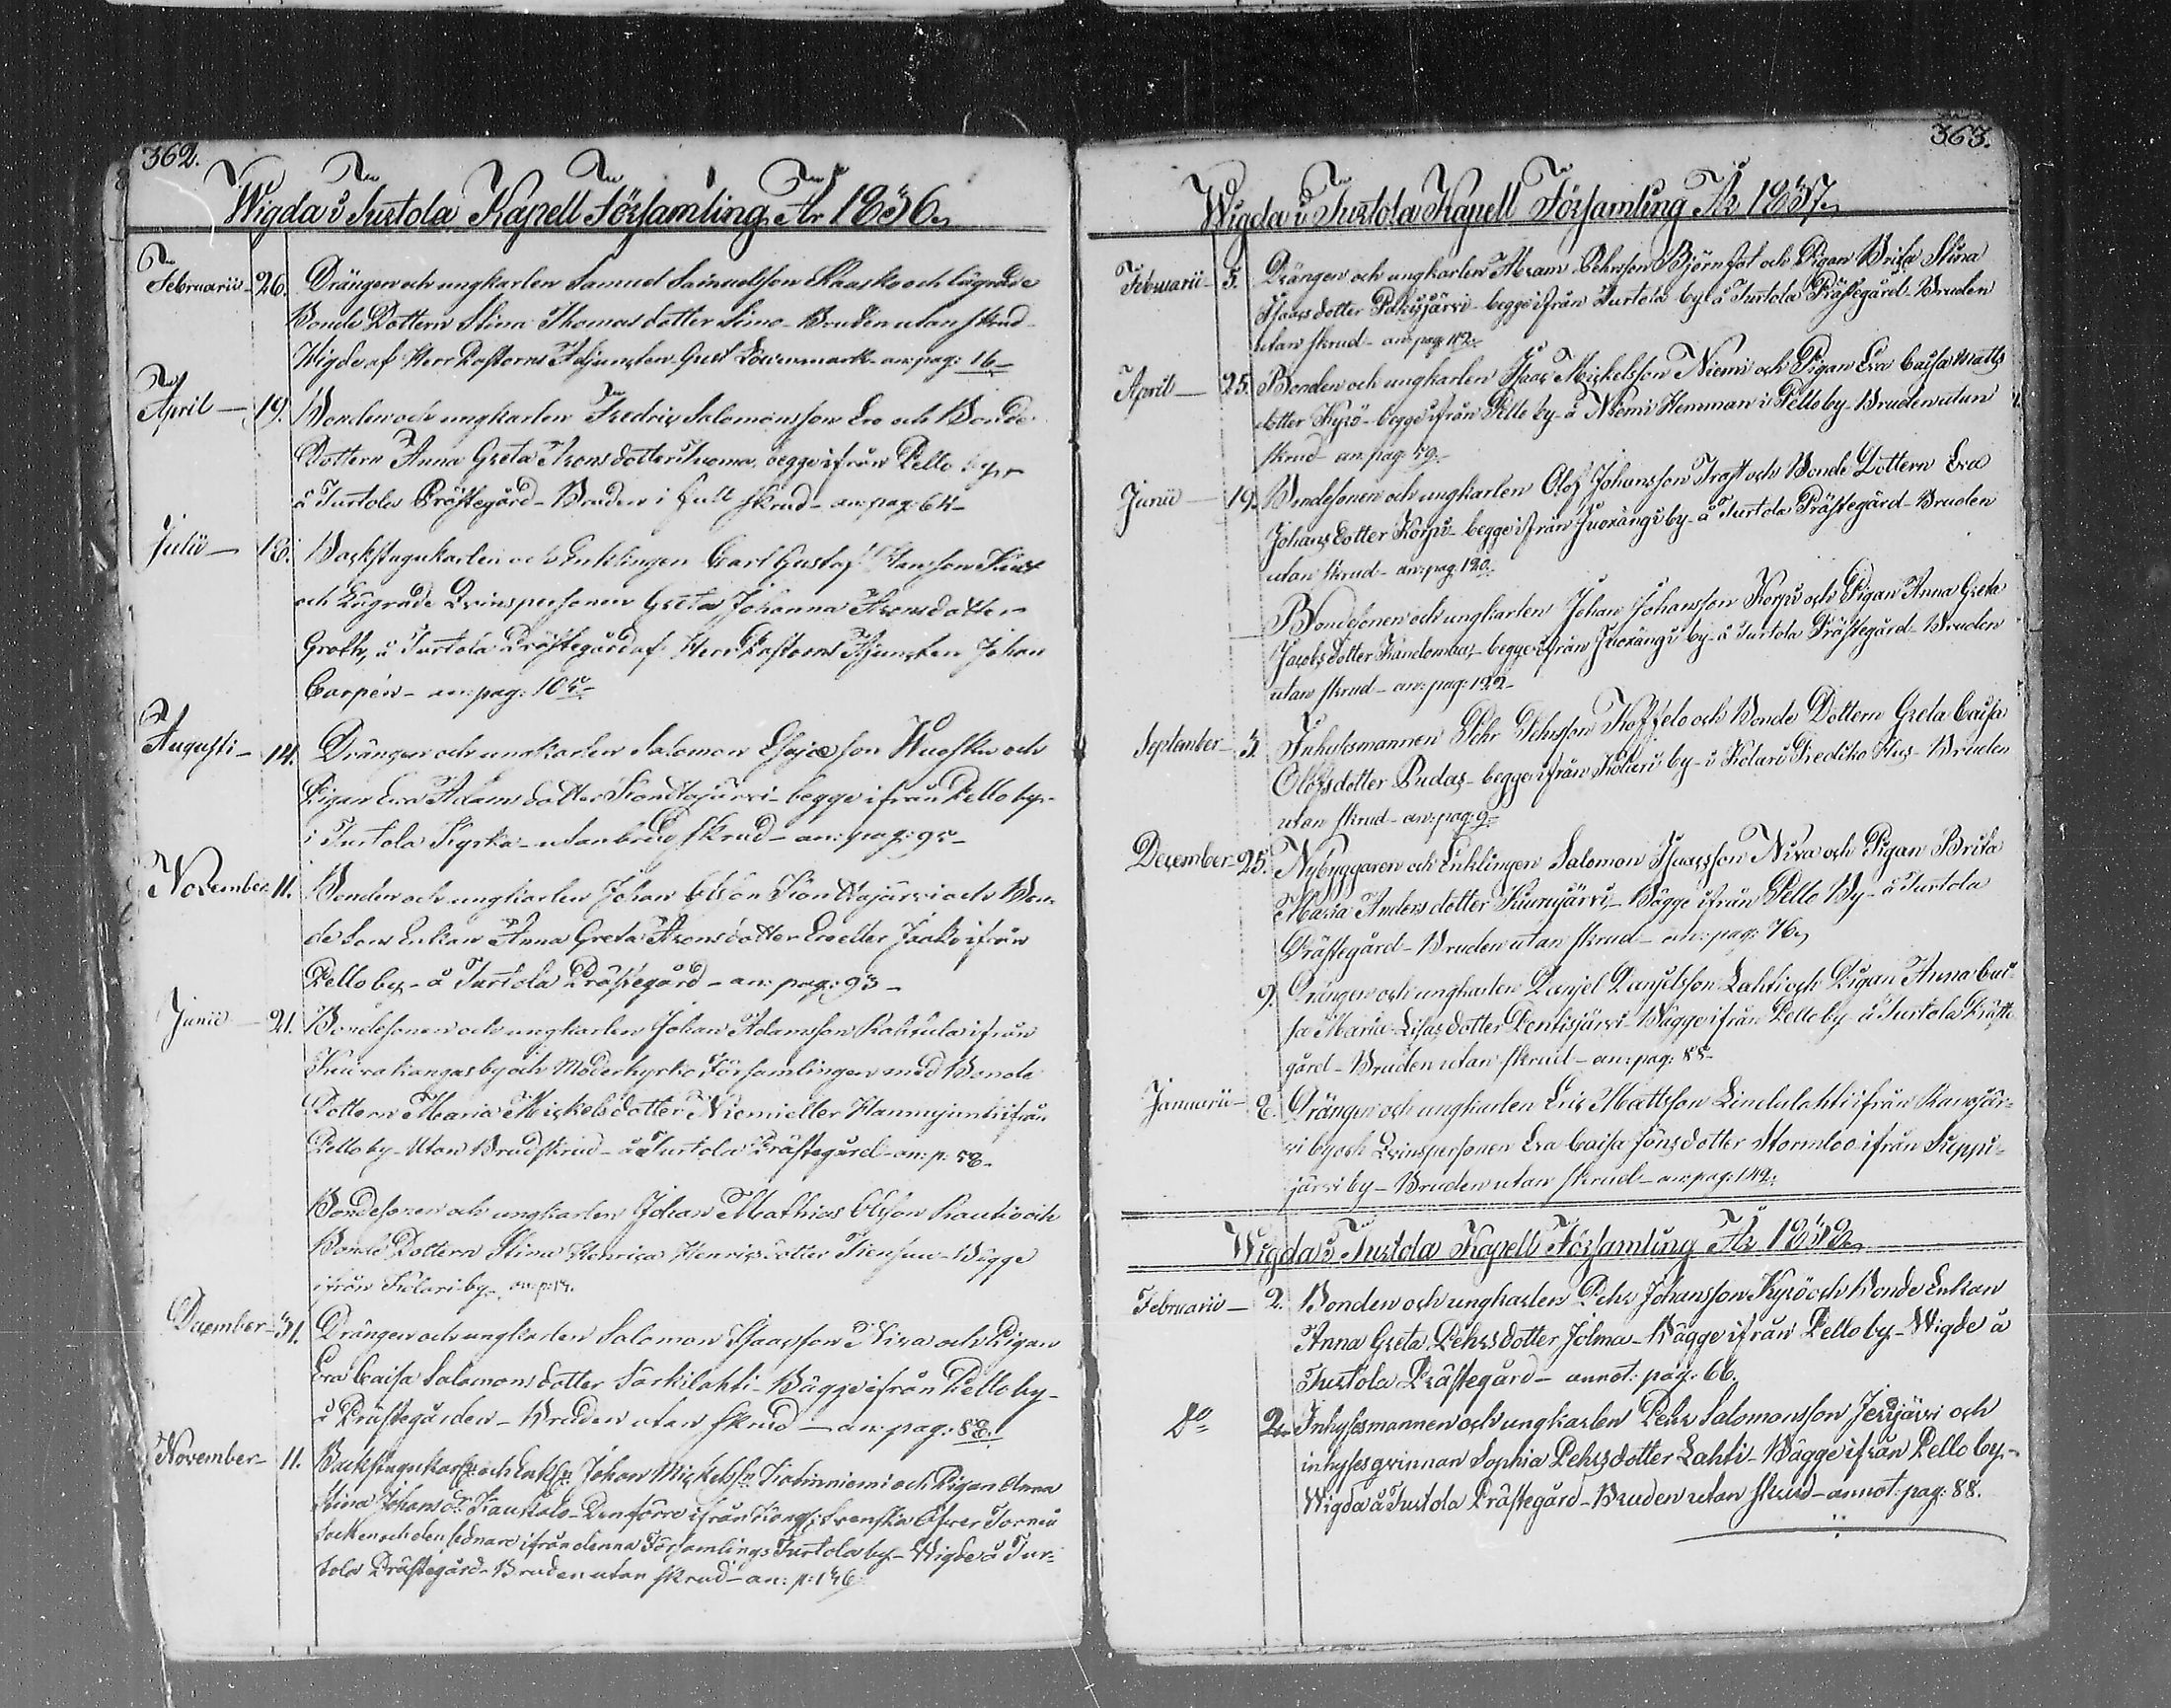 362.
Wigda i Turtola Kapell Församling År 1836.
Februarii 26. Drängen och ungkarlen Samuel Samuelsson Raasko och lägrade
Bonde Dottern Stina Thomas dotter Simo - Bruden utan skrud -
Wigde af Herr Pastorns Adjuncten Gust Löwenmark - an: pag: 16 -
April - 19. Bonden och ungkarlen Fredric Salomonsson Ero och Bonde
Dottern Anna Greta Arons dotter Tuoma, begge ifrån Pello by -
å Turtola Prästegård - Bruden i full skrud - an: pag: 64 -
Julii - 18. Backstugukarlen och Enklingen Carl Gustaf
och Lägrade Qvinspersonen Greta Johanna Aronsdotter
Groth, å Turtola Prästegård af Herr Pastorns Adjuncten Johan
Carpén - an: pag: 105 -
Augusti - 14. Drängen och ungkarlen Salomon Esaiæson Huoska och
Pigan Eva Adams dotter Konttajärvi - begge ifrån Pello by -
i Turtola Kyrka - utan brudskrud - an: pag: 95 -
November 11. Bonden och ungkarlen Johan Olsson Konttajärvi och Bon-
de Sons Enkan Anna Greta Arons dotter Ero eller Jaako ifrån
Pello by - å Turtola Prästegård - an: pag: 93 -
Junii - 21. Bondesonen och ungkarlen Johan Adamsson Rautula ifrån
Kuivakangas by och Moderkyrko Församlingen med Bonde
Dottern Maria Mickels dotter Niemi eller Hannujuntti ifrån
Pello by - Utan Brudskrud - å Turtola Prästegård - an: p: 58 -
Bondesonen och ungkarlen Johan Mathias Olsson Rautio och
Bonde Dottern Stina Henrica Henrics dotter Kiensuu - Bägge
ifrån Kolari by - an: p: 14.
December - 31. Drängen och ungkarlen Salomon Isaacsson Niva och Pigan
Eva Caisa Salomons dotter Särkilahti - Bägge ifrån Pello by -
å Prästegården - Bruden utan skrud - an: pag: 88.
November - 11. Backstugukarln och Enkln Johan Mickelssn Kohinniemi och Pigan Anna
Stina Johans dr Kaukolo - Den förre ifrån Kongl: Svenska Öfver Torneå
Socken och den sednare ifrån denna Församlings Turtola by - Wigde å Tur-
tola Prästegård - Bruden utan skrud - an: p: 146
363.
Wigda i Turtola Kapell Församling År 1837.
Februarii - 5. Drängen och ungkarlen Abram Pehrsson Björnfot och Pigan Brita Stina
Isaacs dotter Pakisjärvi - begge ifrån Turtola by - å Turtola Prästegård - Bruden
utan skrud - an: pag: 112 -
April - 25. Bonden och ungkarlen Isaac Mickelsson Niemi och Pigan Eva Caisa Matts
dotter Kyrö - begge ifrån Pello by - å Niemi Hemman i Pello by - Bruden utan
skrud - an. pag: 59 -
Junii - 19. Bondesonen och ungkarlen Olof Johansson Trast och Bonde Dottern Eva
Johans dotter Korpi - begge ifrån Juoxängi by - å Turtola Prästegård - Bruden
utan skrud - an: pag. 120.
Bondesonen och ungkarlen Johan Johansson Korpi och Pigan Anna Greta
Jacobs dotter Kandomaa - begge ifrån Juoxängi by - å Turtola Prästegård - Bruden
utan skrud - an: pag: 122 -
September 3. Inhysesmannen Pehr Pehrsson Koffelo och Bonde Dottern Greta Caisa
Olofs dotter Pudas - begge ifrån Kolari by - i Kolari Prediko Hus - Bruden
utan skrud - an: pag: 9 -
December - 25. Nybyggaren och Enklingen Salomon Isaacsson Niva och Pigan Brita
Maria Anders dotter Kuunjärvi - Bägge ifrån Pello By - å Turtola
Prästegård - Bruden utan skrud - an: pag: 76.
9. Drängen och ungkarlen Danjel Danjelsson Lahti och Pigan Anna Cai-
sa Maria Lisas dotter Pentisjärvi - Bägge ifrån Pello by - å Turtola Präste-
gård - Bruden utan skrud - an: pag: 88 -
Januarii - 8. Drängen och ungkarlen Eric Mattsson Lindulahti ifrån Ranojär-
vi by och Qvinspersonen Eva Caisa Jöns dotter Stormloo ifrån Suppi-
järvi by - Bruden utan skrud - an: pag: 142.
Wigda i Turtola Kapell Församling År 1838.
Februarii - 2. Bonden och ungkarlen Pehr Johansson Kyrö och Bonde Enkan
Anna Greta Pehrs dotter Jolma - Bägge ifrån Pello by - Wigde å
Turtola Prästegård - annot: pag: 66.
Do 2. Inhysesmannen och ungkarlen Pehr Salomonsson Jerijärvi och
inhyses qvinnan Sophia Pehrs dotter Lahti - Bägge ifrån Pello by -
Wigda å Turtola Prästegård - Bruden utan skrud - annot: pag: 88.